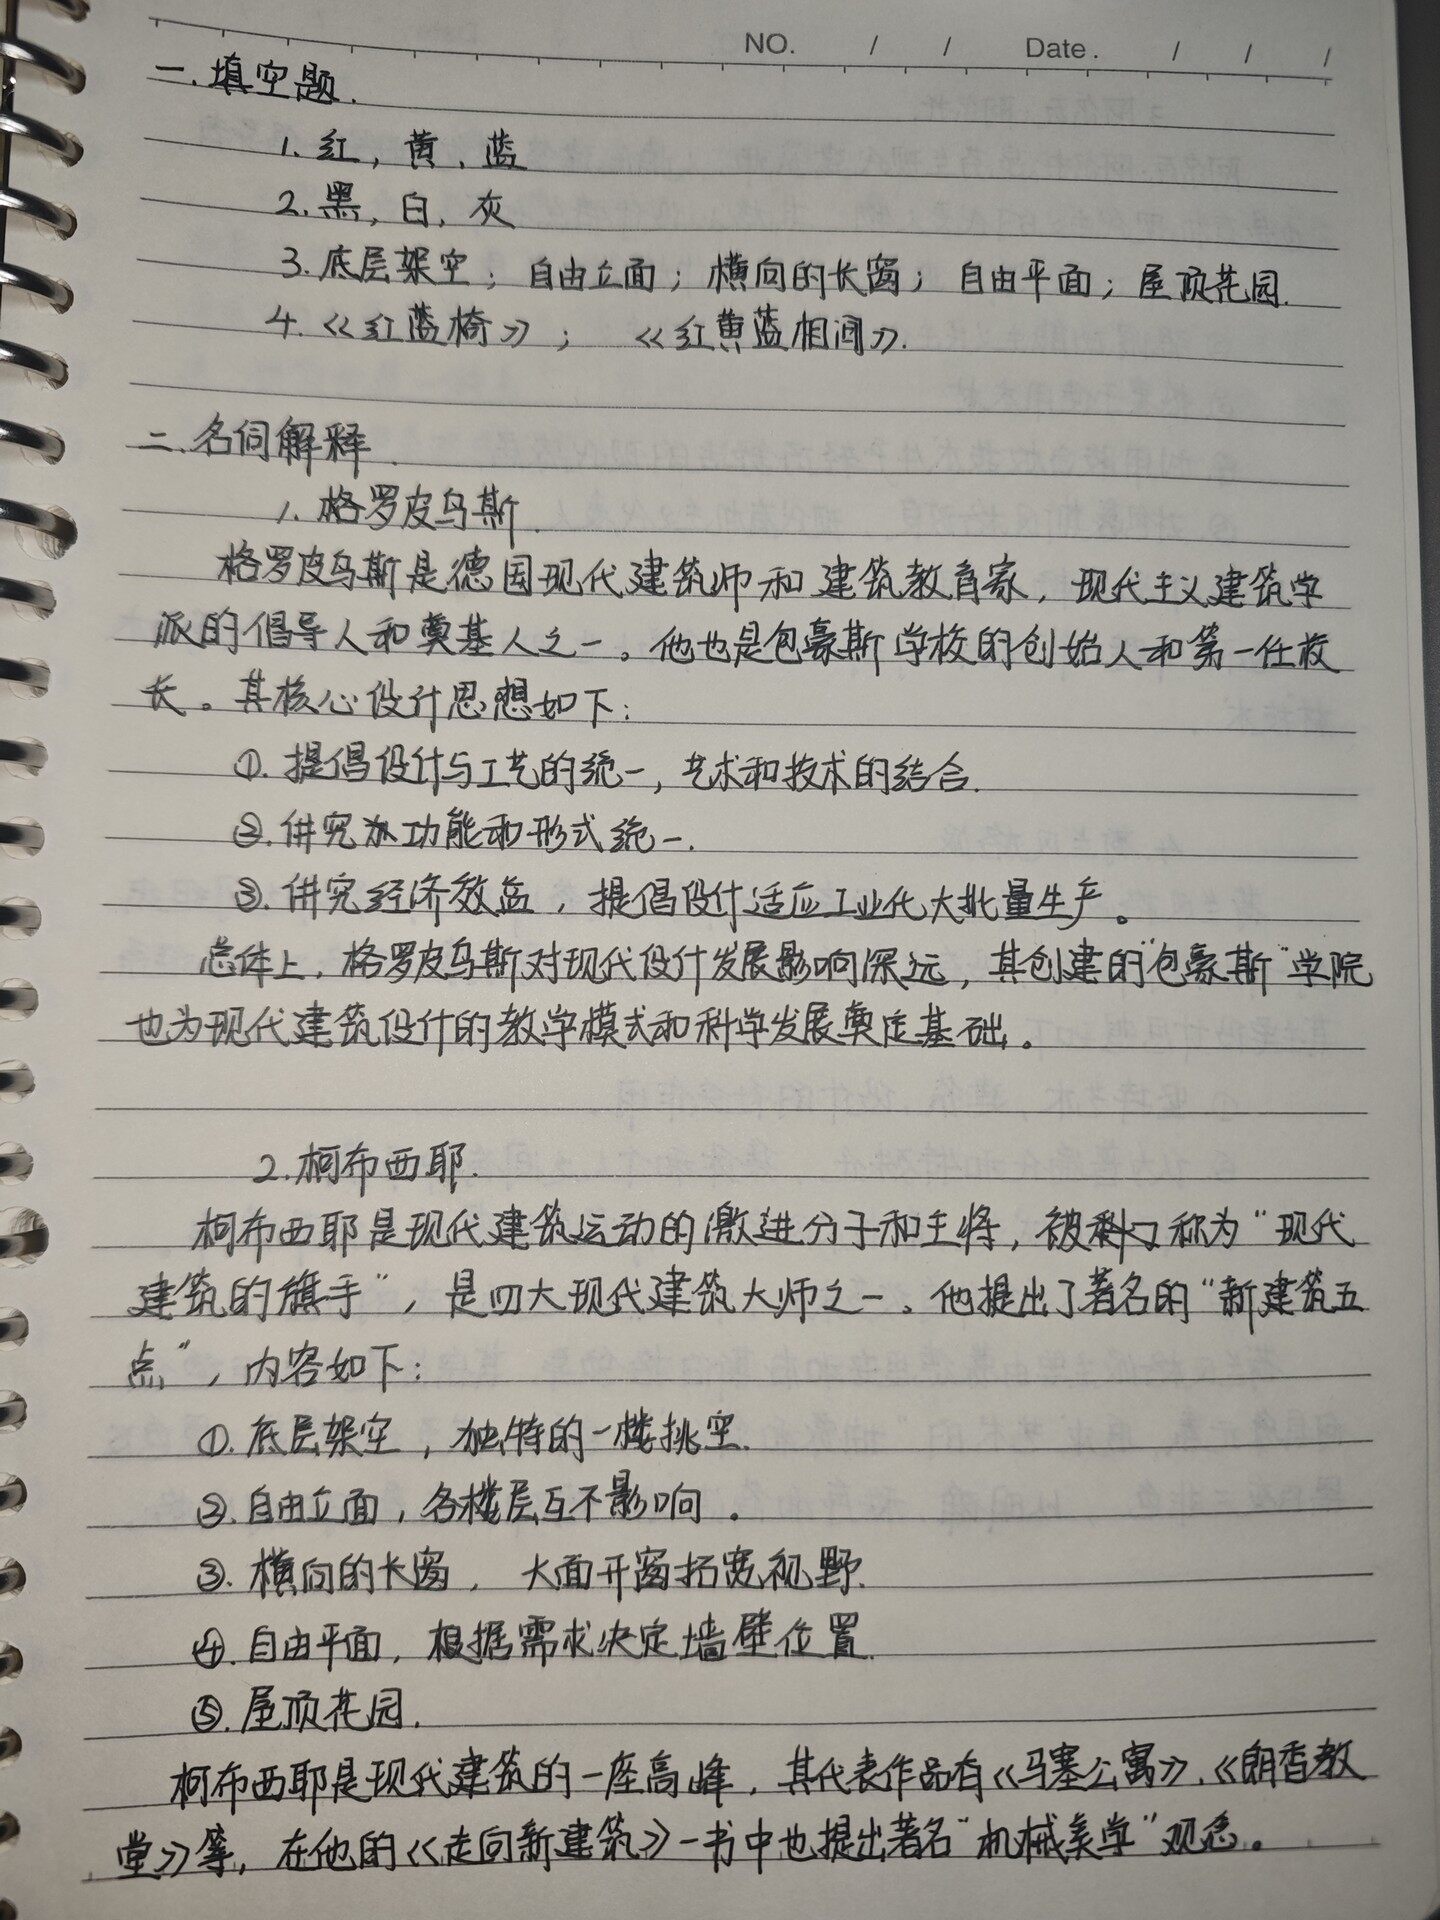 NO. / / Date. / / /
一.填空题.
1.红,黄、蓝
2.黑,白,灰
3.底层架空;自由立面;横向的长窗;自由平面;屋顶花园.
4.《红蓝椅》; 《红黄蓝相间》.
二.名词解释.
1.格罗皮乌斯.
格罗皮乌斯是德国现代建筑师和建筑教育家,现代主义建筑学
派的倡导人和奠基人之一。他也是包豪斯学校的创始人和第一任校
长。其核心设计思想如下:
①.提倡设计与工艺的统一,艺术和技术的结合.
②.讲究功能和形式统一.
③.讲究经济效益,提倡设计适应工业化大批量生产。
总体上,格罗皮乌斯对现代设计发展影响深远,其创建的"包豪斯"学院
也为现代建筑设计的教学模式和科学发展奠定基础。
2.柯布西耶.
柯布西耶是现代建筑运动的激进分子和主将,被称为"现代
建筑的旗手",是四大现代建筑大师之一。他提出了著名的"新建筑五
点",内容如下:
①.底层架空,独特的一楼挑空.
②.自由立面,各楼层互不影响。
③.横向的长窗,大面开窗拓宽视野.
④.自由平面,根据需求决定墙壁位置.
⑤.屋顶花园.
柯布西耶是现代建筑的一座高峰,其代表作品有《马塞公寓》、《朗香教
堂》等,在他的《走向新建筑》一书中也提出著名"机械美学"观念。